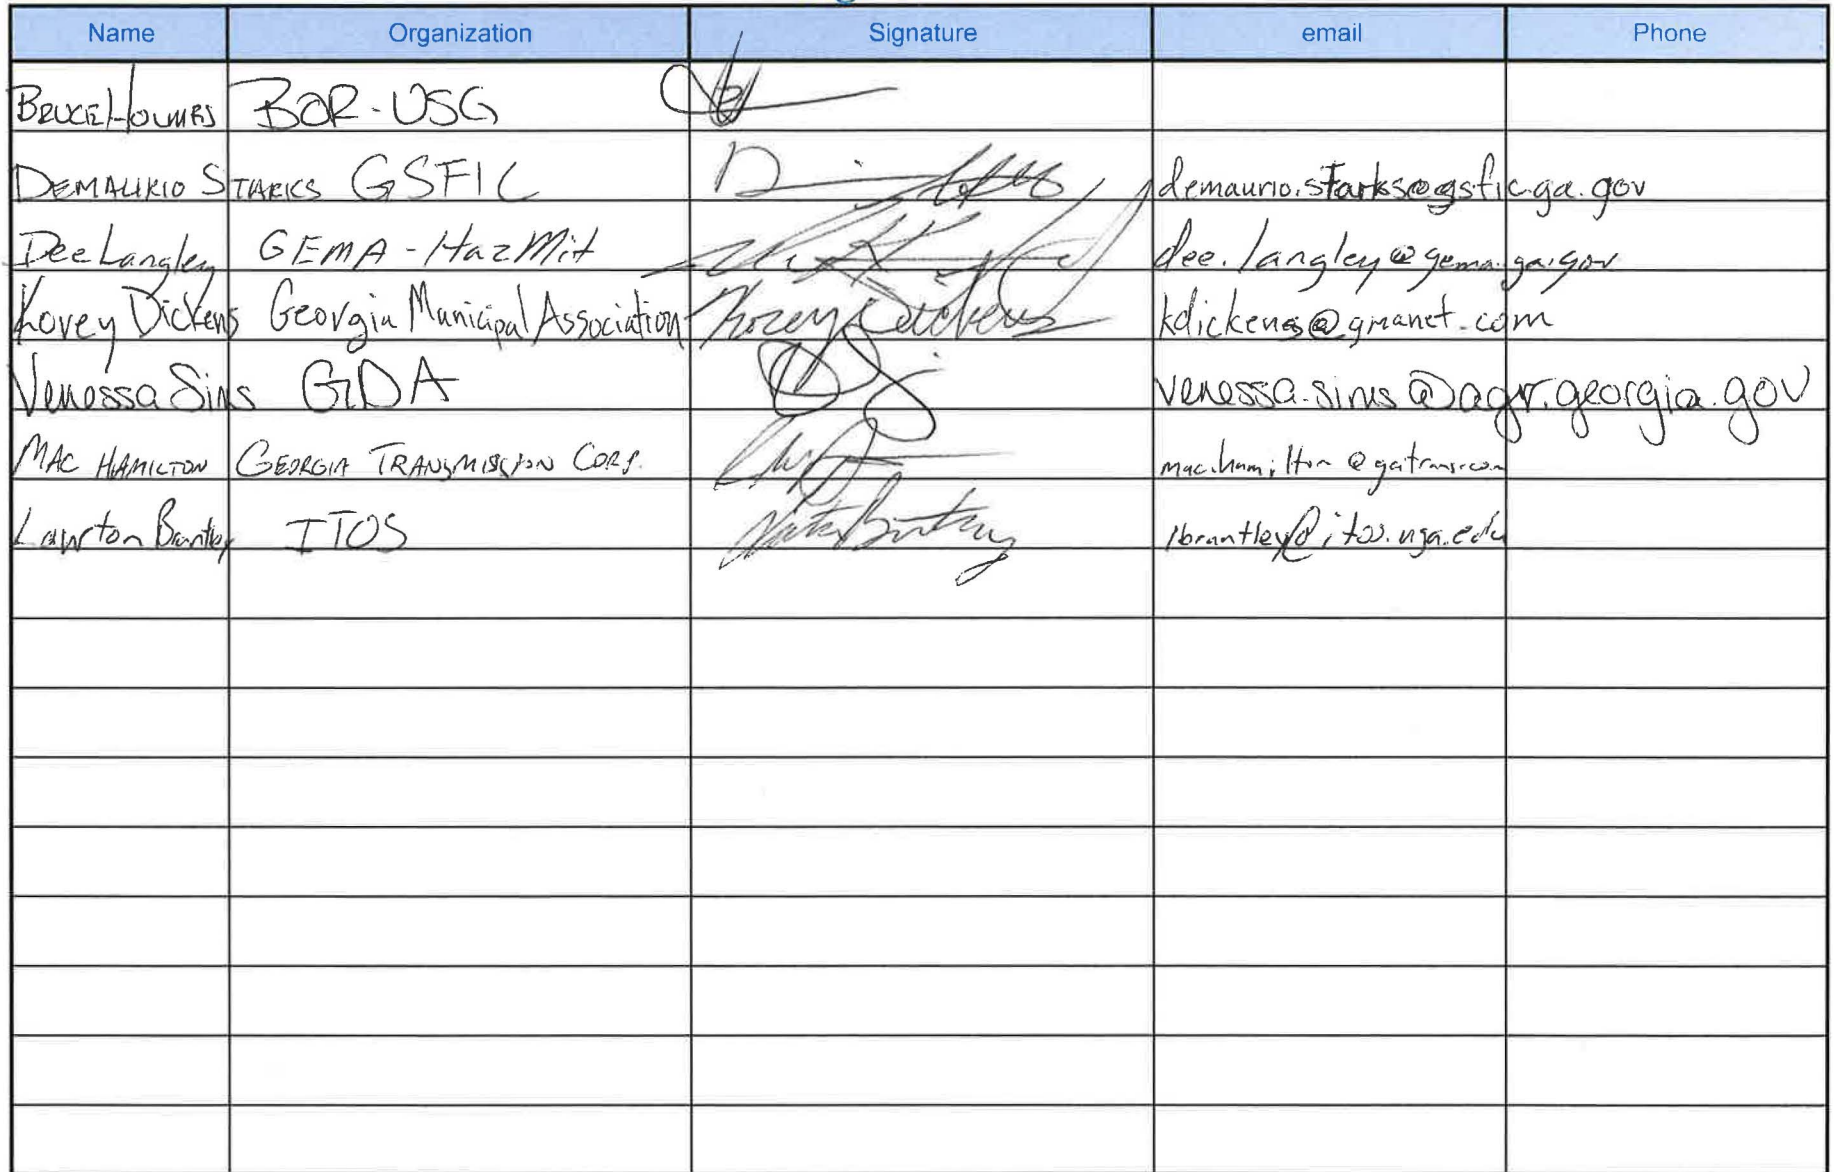 Name Organization Signature email Phone
BRUCE HOLMES BOR-USG
DEMAURIO STARKS GSFIC demaurio.starks@gsfic.ga.gov
Dee Langley GEMA-HazMit dee.langley@gema.ga.gov
Korey Dickens Georgia Municipal Association Korey Dickens kdickens@gmanet.com
Venessa Sims GDA venessa.sims@agr.georgia.gov
MAC HAMILTON GEORGIA TRANSMISSION CORP. mac.hamilton@gatrans.com
Lawton Brantley ITOS lbrantley@itos.uga.edu